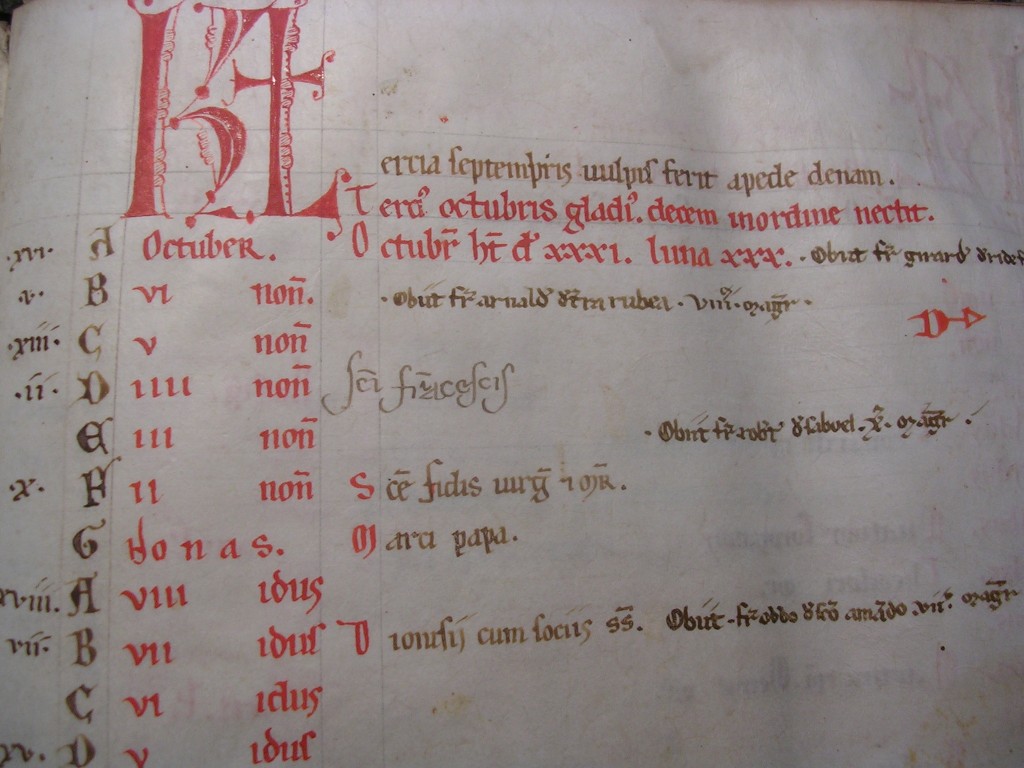 KL
ercia septempris uulpis ferit apede denam.
T erci' octubris gladi'. decem inordine nectit.
.xvi. A Octuber. O ctubr̄ ht̄ d' xxxi. luna xxx. · Obiit fr̄ girard' d'ridef
.v. B vi noñ. · Obiit fr̄ arnald' d't̄ra rubea · viiii' · magr̄ ·
D
·xiii· C v noñ
·ii· D iiii noñ Sc̄i fr̄ācescis
E iii noñ · Obiit fr̄ robt' d'sabuel · x' · magr̄ ·
·x· F ii noñ S cē fidis uirḡ ⁊ mr̄.
G Nonas. M arci papa.
xviii. A viii idus
vii· B vii idus D ionisij cum sociis ss̄. Obiit · fr̄ oddo d'sc̄o amādo .vii'. magr̄
C vi idus
xv. D v idus